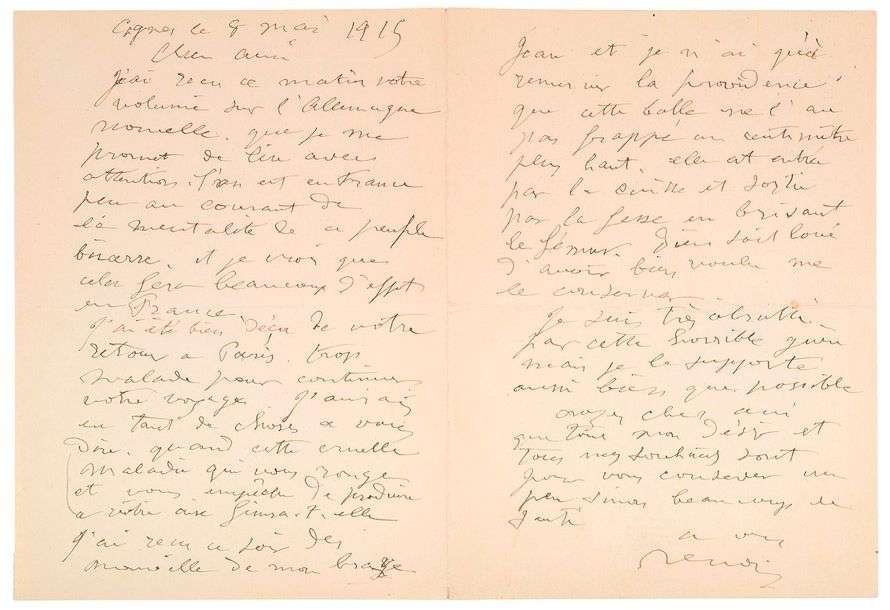 Cagnes le 8 mai 1915
Cher ami
j'ai reçu ce matin votre
volume sur l'Allemagne
nouvelle. que je me
promet de lire avec
attention. l'on est en France
peu au courant de
la mentalité de ce peuple
bizarre. et je crois que
cela fera beaucoup d'effet
en France
j'ai été bien déçu de votre
retour a Paris. trop
malade pour continuer
votre voyage. j'aurais
eu tant de choses a vous
dire. quand cette cruelle
maladie qui vous ronge
et vous empêche de produire
a votre aise finira-t-elle
j'ai reçu ce soir des
nouvelle de mon brave
Jean et je n'ai qu'à
remercier la providence
que cette balle ne l'au
pas frappé un centimètre
plus haut. elle est entré
par la cuisse et sortie
par la fesse en brisant
le fémur. Dieu soit loué
d'avoir bien voulu me
le conserver.
Je suis très abruti
par cette horrible guerre
mais je la supporte
aussi bien que possible
croyez cher ami
que tout mon désir et
tous mes souhaits sont
pour vous conserver un
peu sinon beaucoup de
santé
a vous
Renoir